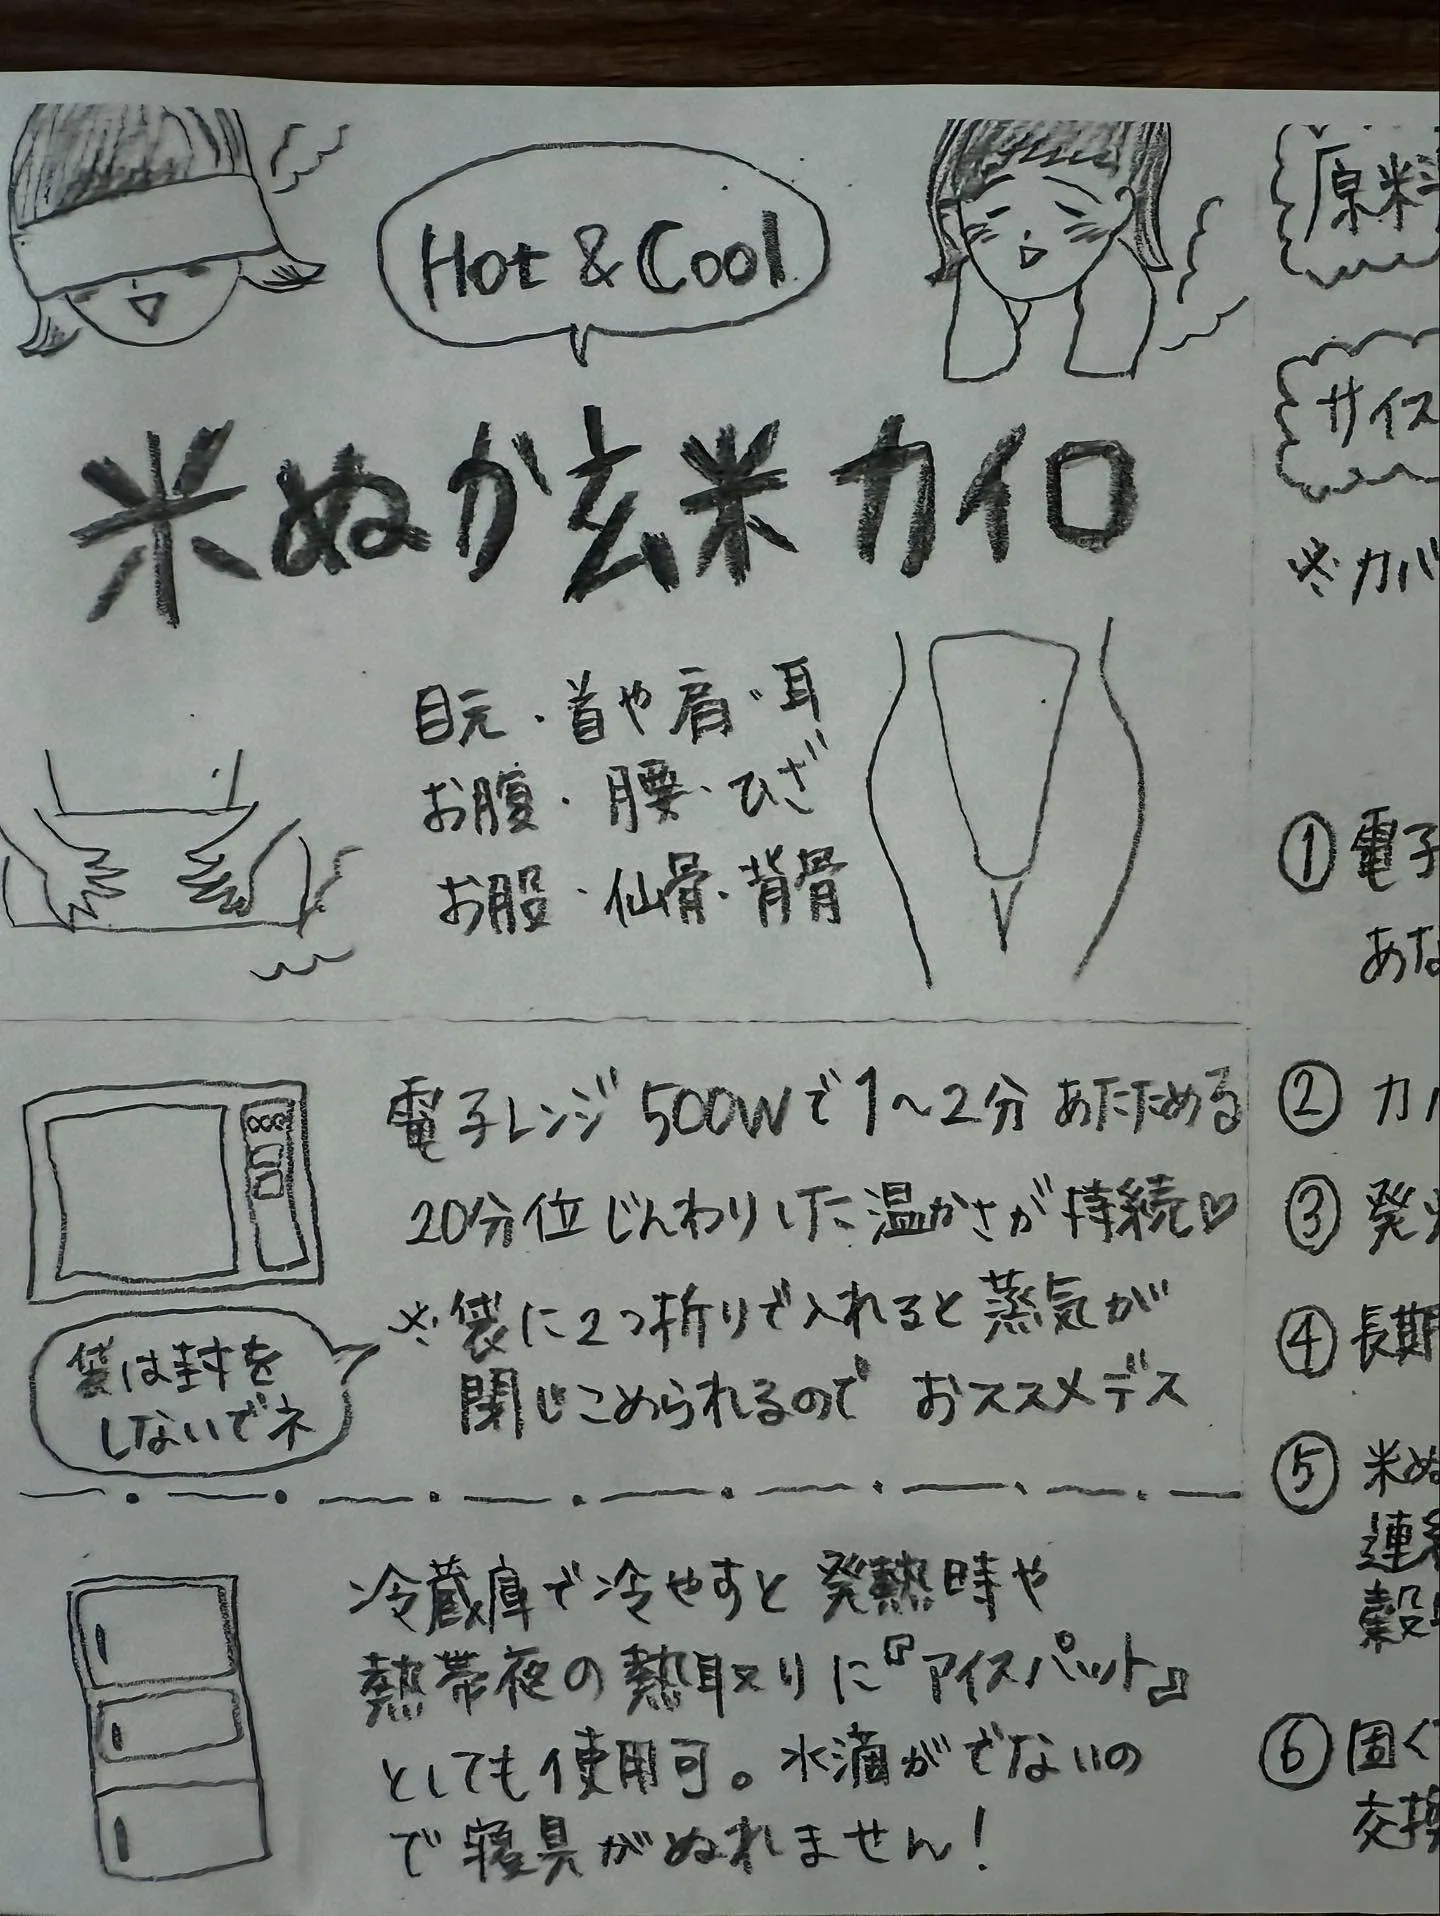 Hot & Cool
米ぬか玄米カイロ
目元・首や肩・耳
お腹・腰・ひざ
お股・仙骨・背骨
電子レンジ500Wで1~2分あたためる
20分位じんわりした温かさが持続♡
※袋に2つ折りで入れると蒸気が
閉じこめられるのでおススメデス
袋は封を
しないでネ
冷蔵庫で冷やすと発熱時や
熱帯夜の熱取りに『アイスパット』
としても使用可。水滴がでないの
で寝具がぬれません!
原料
サイズ
※カバ
①電子
あな
②カ
③発火
④長期
⑤米ぬ
連続
穀
⑥固く
交換